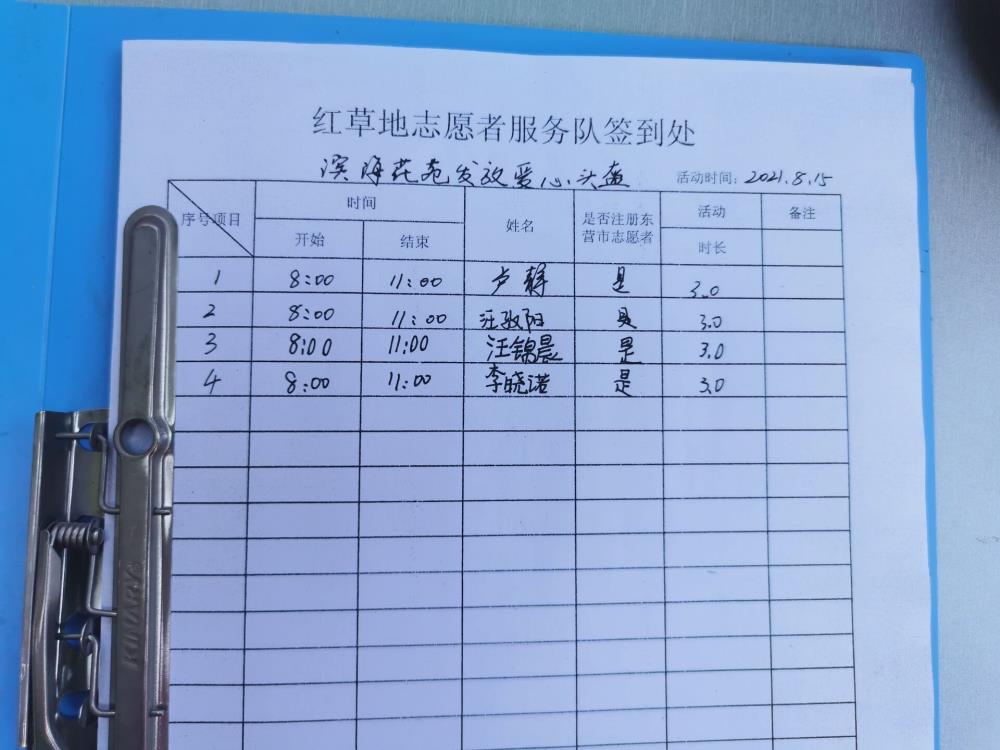 红草地志愿者服务队签到处
滨海花苑发放爱心头盔 活动时间：2021.8.15
序号项目 时间 姓名 是否注册东营市志愿者 活动 备注
开始 结束 时长
1 8:00 11:00 卢静 是 3.0
2 8:00 11:00 汪敬阳 是 3.0
3 8:00 11:00 汪锦晨 是 3.0
4 8:00 11:00 李晓诺 是 3.0
KINARY